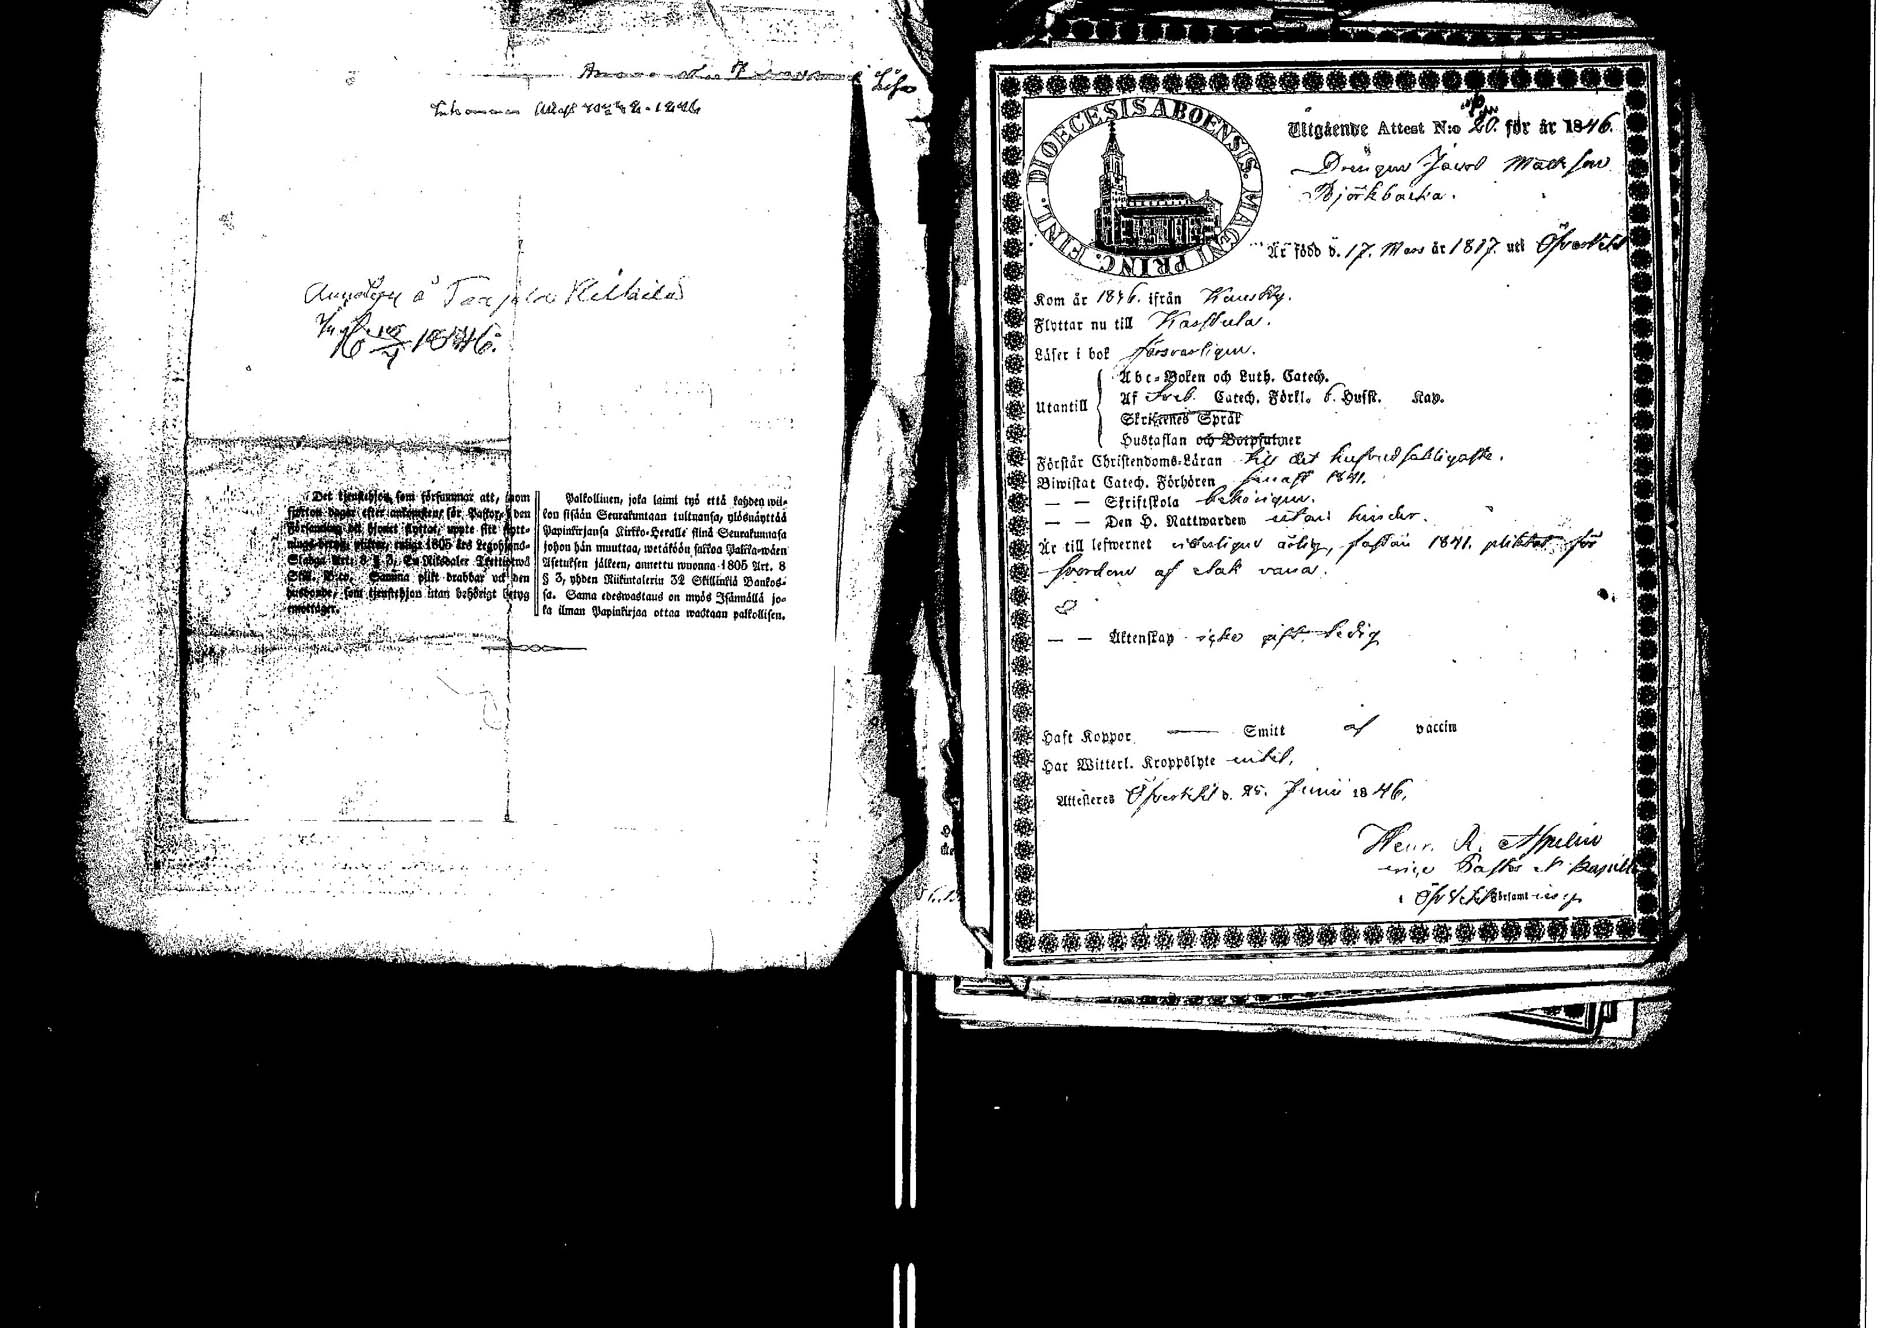 Inkommen Attest N:o 1846
Anmäldt
1846.
Det tjenstehjon, som försummar att, inom
fjorton dagar efter ankomsten, för Pastor i den
Församling dit hjonet flyttat, uppte sitt flytt-
nings-betyg, plikte, enligt 1805 års Legohjons-
Stadga Art. 8 § 3, En Riksdaler Trettiotwå
Skill. B:co. Samma plikt drabbar ock den
husbonde, som tjenstehjon utan behörigt betyg
emottager.
Palkollinen, joka laimi lyö että kahden wii-
kon sisään Seurakuntaan tultuansa, ylösnäyttää
Papinkirjansa Kirkko-Herralle siinä Seurakunnasa
johon hän muuttaa, wetäköön sakkoa Palkka-wäen
Asetuksen jälkeen, annettu wuonna 1805 Art. 8
§ 3, yhden Riikintalerin 32 Skillinkiä Bankos-
sa. Sama edeswastaus on myös Isännällä jo-
ka ilman Papinkirjaa ottaa wastaan palkollisen.
DIOECESIS ABOENSIS. MAGNI PRINC. FINL.
Utgående Attest N:o 20. för år 1846.
Drängen Jacob Matts son
Björkbacka.
Är född d. 17. Mars år 1817. uti
Kom år 1846. ifrån Kaustby.
Flyttar nu till Karstula.
Läser i bok försvarligen.
Utantill
Abc-Boken och Luth. Catech.
Af Sveb. Catech. Förkl. 6. Huffst. Kap.
Skriftenes Språk
Hustaflan och Botpsalmer
Förstår Christendoms-Läran till det hufvudsakligaste.
Biwistat Catech. Förhören senast 1841.
— — Skriftskola behörigen.
— — Den H. Nattwarden utan hinder.
Är till lefwernet ärlig, fastän 1841. pliktat för
af
— — Äktenskap icke gift. ledig
Haft Koppor — Smitt af vaccin
Har Witterl. Kroppslyte intet.
Attesteres d. 25. Junii 1846.
Henr. A.
Pastor
i Församling